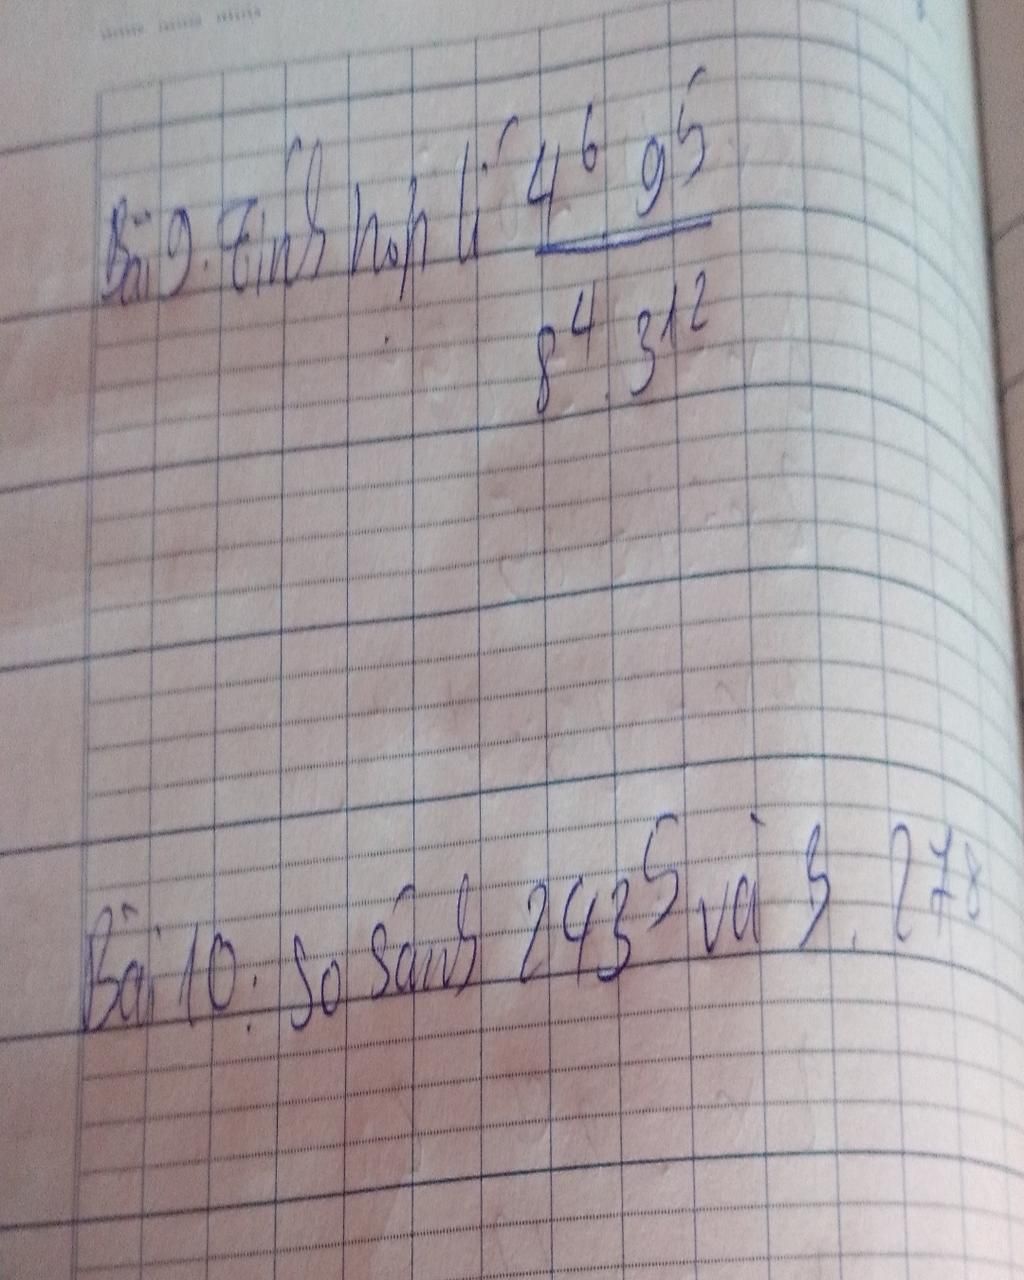 Bài 9. Tính hợp lí 4⁶ 9⁵
8⁴ . 3¹²
Bài 10: So sánh 243⁵ và 3 . 27⁸